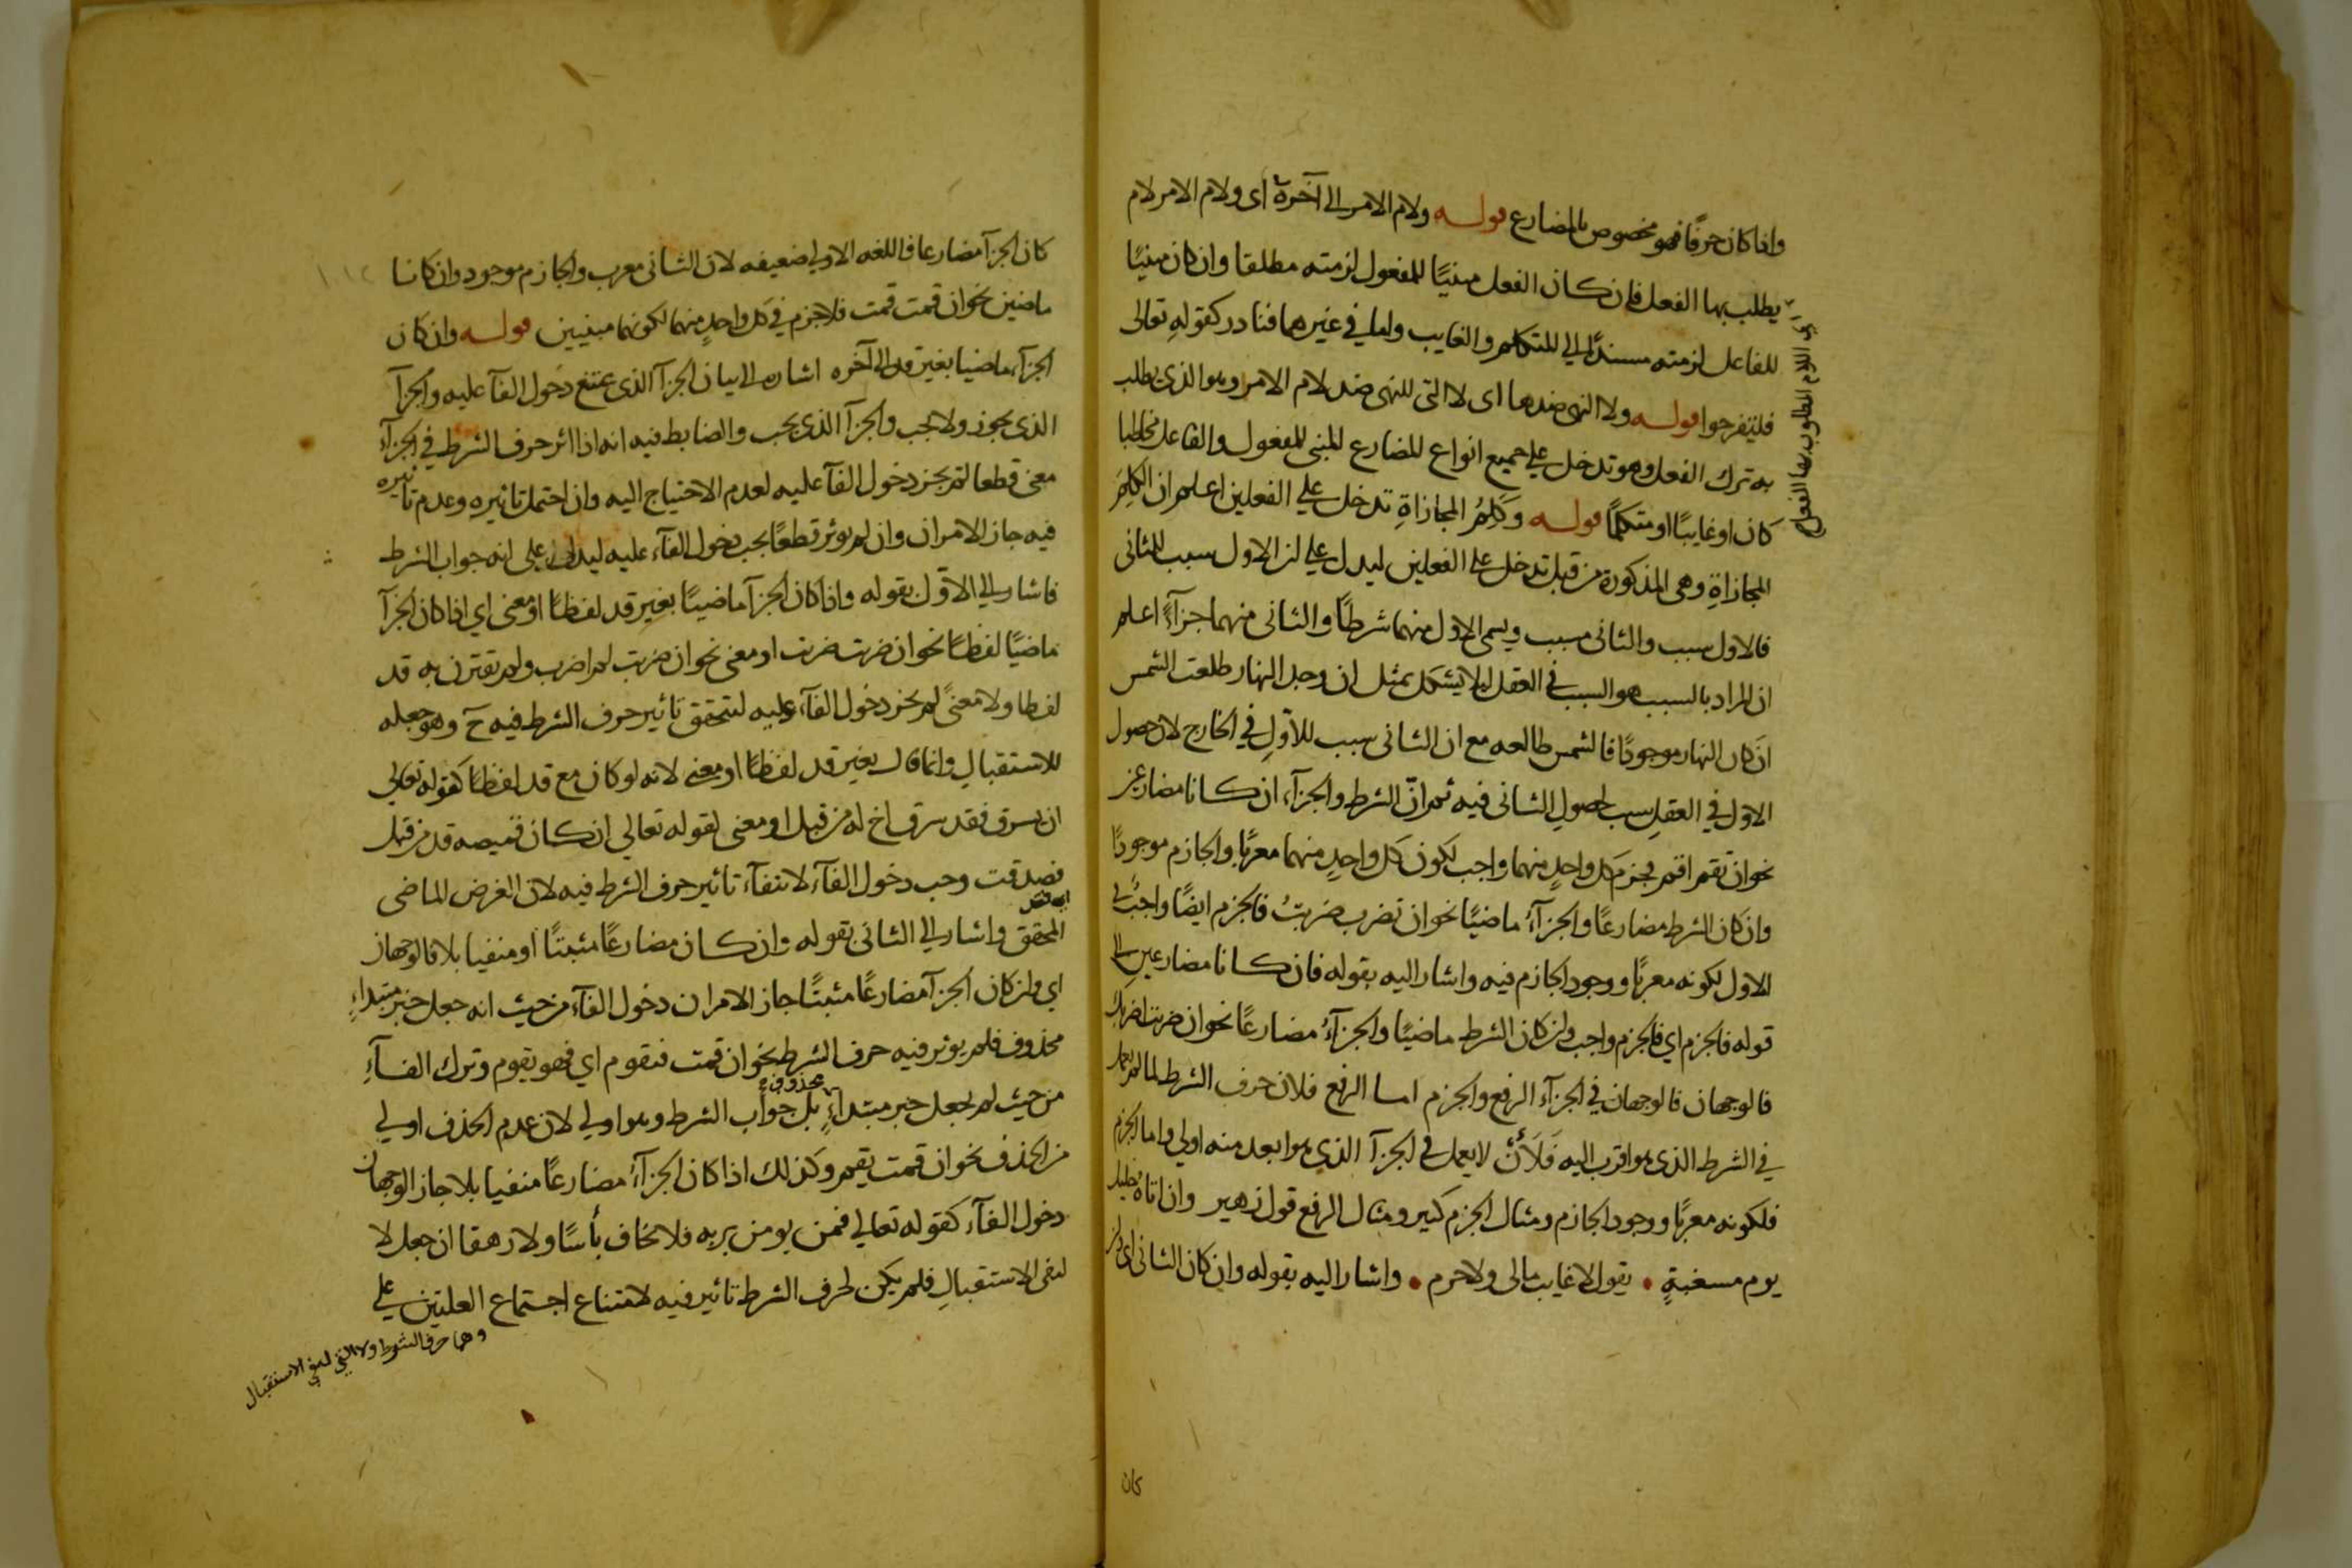 واذا كان حرفا فهو مخصوص بالمضارع قوله ولام الامر الى آخره اى ولام الامر لام
يطلب بها الفعل فان كان الفعل مبنيًا للمفعول لزمته مطلقا وان كان مبنيًا
للفاعل لزمته مسندًا الى المتكلم والغايب واما في غيرهما فنادر كقوله تعالى
فلتفرحوا قوله ولا النهى ضدها اى لا التى للنهى ضد لام الامر وهو الذى يطلب
به ترك الفعل وهو تدخل على جميع انواع المضارع المبنى للمفعول والفاعل مخاطبا
كان او غايبًا او متكلمًا قوله وكلم المجازاةِ تدخل على الفعلين اعلم ان الكلم
المجازاةِ وهى المذكورة من قبل تدخل على الفعلين ليدل على ان الاول سبب للثانى
فالاول سبب والثانى مسبب ويسمى الاول منهما شرطًا والثانى منهما جزآءً اعلم
ان المراد بالسبب هو السبب في العقل ليلا يشكل بمثل ان وجد النهار طلعت الشمس
ان كان النهار موجودًا فالشمس طالعه مع ان الثانى سبب للاوّلِ في الخارج لان حصول
الاول في العقلِ سبب لحصولِ الثانى فيه ثم انّ الشرط والجزآء ان كانا مضارعين
نحو ان تقم اقم فجزم كل واحدٍ منهما واجب لكون كل واحدٍ منهما معربًا والجازم موجودًا
وان كان الشرط مضارعًا والجزآءُ ماضيًا نحو ان تضرب ضربتُ فالجزم ايضًا واجب في
الاول لكونه معربًا ووجود الجازم فيه واشار اليه بقوله فان كانا مضارعين الى
قوله فالجزم اي فالجزم واجب وان كان الشرط ماضيًا والجزآءُ مضارعًا نحو ان ضربت اضربك
فالوجهان فالوجهان في الجزآء الرفع والجزم اما الرفع فلان حرف الشرط لما لم يعمل
في الشرط الذى هو اقرب اليه فَلَأَنْ لا يعمل في الجزآ الذي هو ابعد منه اولى واما الجزم
فلكونه معربًا ووجود الجازم ومثال الجزم كثير ومثال الرفع قول زهير وان اتاه خليل
يوم مسغبةٍ • يقول لا غايب مالى ولا حرم • واشار اليه بقوله وان كان الثانى اى وان
كان
اى اللام المطلوب بها الفعل
كان الجزآ مضارعا فاللغه الاولى ضعيفه لان الثانى معرب والجازم موجود وان كانا
ماضيين نحو ان قمت قمت فلا جزم في كل واحدٍ منهما لكونهما مبنيين قوله وان كان
الجزآء ماضيا بغير قد الى آخره اشاره الى بيان الجزآ الذى يمتنع دخول الفآ عليه والجزآ
الذى يجوز ولا يجب والجزآ الذى يجب والضابط فيه انه اذا اثر حرف الشرط في الجزآء
معنى قطعا لم يجز دخول الفآ عليه لعدم الاحتياج اليه وان احتمل تاثيره وعدم تاثيره
فيه جاز الامران وان لم يوثر قطعًا يجب دخول الفآء عليه ليدل على انه جواب الشرط
فاشار الى الاوّل بقوله واذا كان الجزآ ماضيًا بغير قد لفظًا او معنى اي اذا كان الجزآ
ماضيًا لفظًا نحو ان ضربت ضربت او معنى نحو ان ضربت لم اضرب ولم تقترن به قد
لفظا ولا معنىً لم يجز دخول الفآء عليه لتحقق تاثير حرف الشرط فيه ح وهو جعله
للاستقبالِ وانما قال بغير قد لفظًا او معنى لانه لو كان مع قد لفظًا كقوله تعالى
ان يسرق فقد سرق اخ له من قبل او معنى كقوله تعالى ان كان قميصه قد من قبل
فصدقت وجب دخول الفآء لانتفآء تاثير حرف الشرط فيه لان الغرض الماضى
المحقق واشار الى الثانى بقوله وان كان مضارعًا مثبتًا او منفيا بلا فالوجهان
اي وان كان الجزآ مضارعًا مثبتًا جاز الامران دخول الفآء من حيث انه جعل خبر مبتداءٍ
محذوف فلم يوثر فيه حرف الشرط نحو ان قمت فيقوم اي فهو يقوم وترك الفآءِ
من حيث لم يجعل خبر مبتداءٍ محذوف بل جواب الشرط وهو اولى لان عدم الحذف اولى
من الحذف نحو ان قمت يقم وكذلك اذا كان الجزآءُ مضارعًا منفيا بلا جاز الوجهان
دخول الفآء كقوله تعالى فمن يومن بربه فلا يخاف بأسًا ولا رهقا ان جعل لا
لنفى الاستقبالِ فلم يكن لحرف الشرط تاثير فيه لامتناع اجتماع العلتين على
وهما حرف الشرط ولا التي لنفي الاستقبال